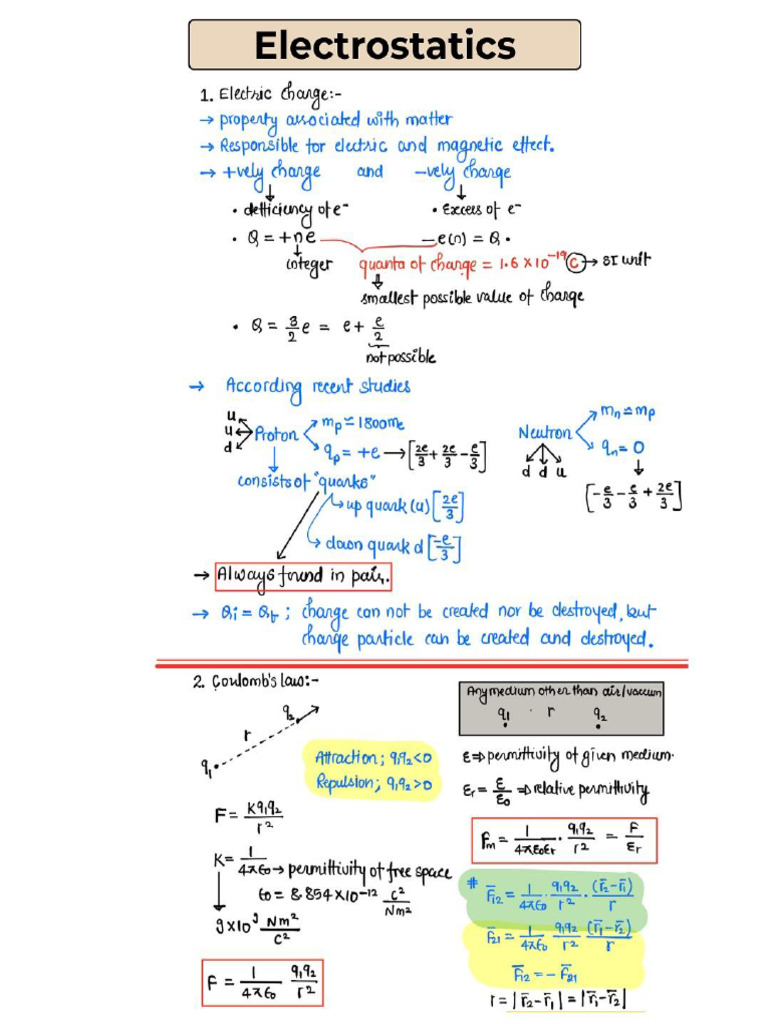 Electrostatics
1. Electric charge:-
→ property associated with matter
→ Responsible for electric and magnetic effect.
→ +vely charge and -vely charge
• defficiency of e⁻ • Excess of e⁻
• Q = +ne -e(n) = Q •
integer quanta of charge = 1.6 × 10⁻¹⁹ C → SI unit
smallest possible value of charge
• Q = 3/2 e = e + e/2
not possible
→ According recent studies
u u d ← Proton mp ≃ 1800me
qp = +e → [2e/3 + 2e/3 - e/3]
consists of "quarks"
up quark (u) [2e/3]
down quark d [-e/3]
Neutron mn ≃ mp
qn = 0
d d u
[-e/3 - e/3 + 2e/3]
→ Always found in pair.
→ Qi = Qf ; charge can not be created nor be destroyed, but
charge particle can be created and destroyed.
2. Coulomb's law:-
q₁ r q₂
Attraction ; q₁q₂<0
Repulsion ; q₁q₂>0
F = Kq₁q₂/r²
K = 1/4πε₀ → permittivity of free space
ε₀ = 8.854×10⁻¹² C²/Nm²
9×10⁹ Nm²/C²
F = 1/4πε₀ q₁q₂/r²
Any medium other than air/vaccum
q₁ r q₂
ε ⇒ permittivity of given medium.
εr = ε/ε₀ ⇒ relative permittivity
Fm = 1/4πε₀εr . q₁q₂/r² = F/εr
# F̄₁₂ = 1/4πε₀ . q₁q₂/r² . (r̄₂-r̄₁)/r
F̄₂₁ = 1/4πε₀ q₁q₂/r² (r̄₁-r̄₂)/r
F̄₁₂ = - F̄₂₁
r = |r̄₂-r̄₁| = |r̄₁-r̄₂|